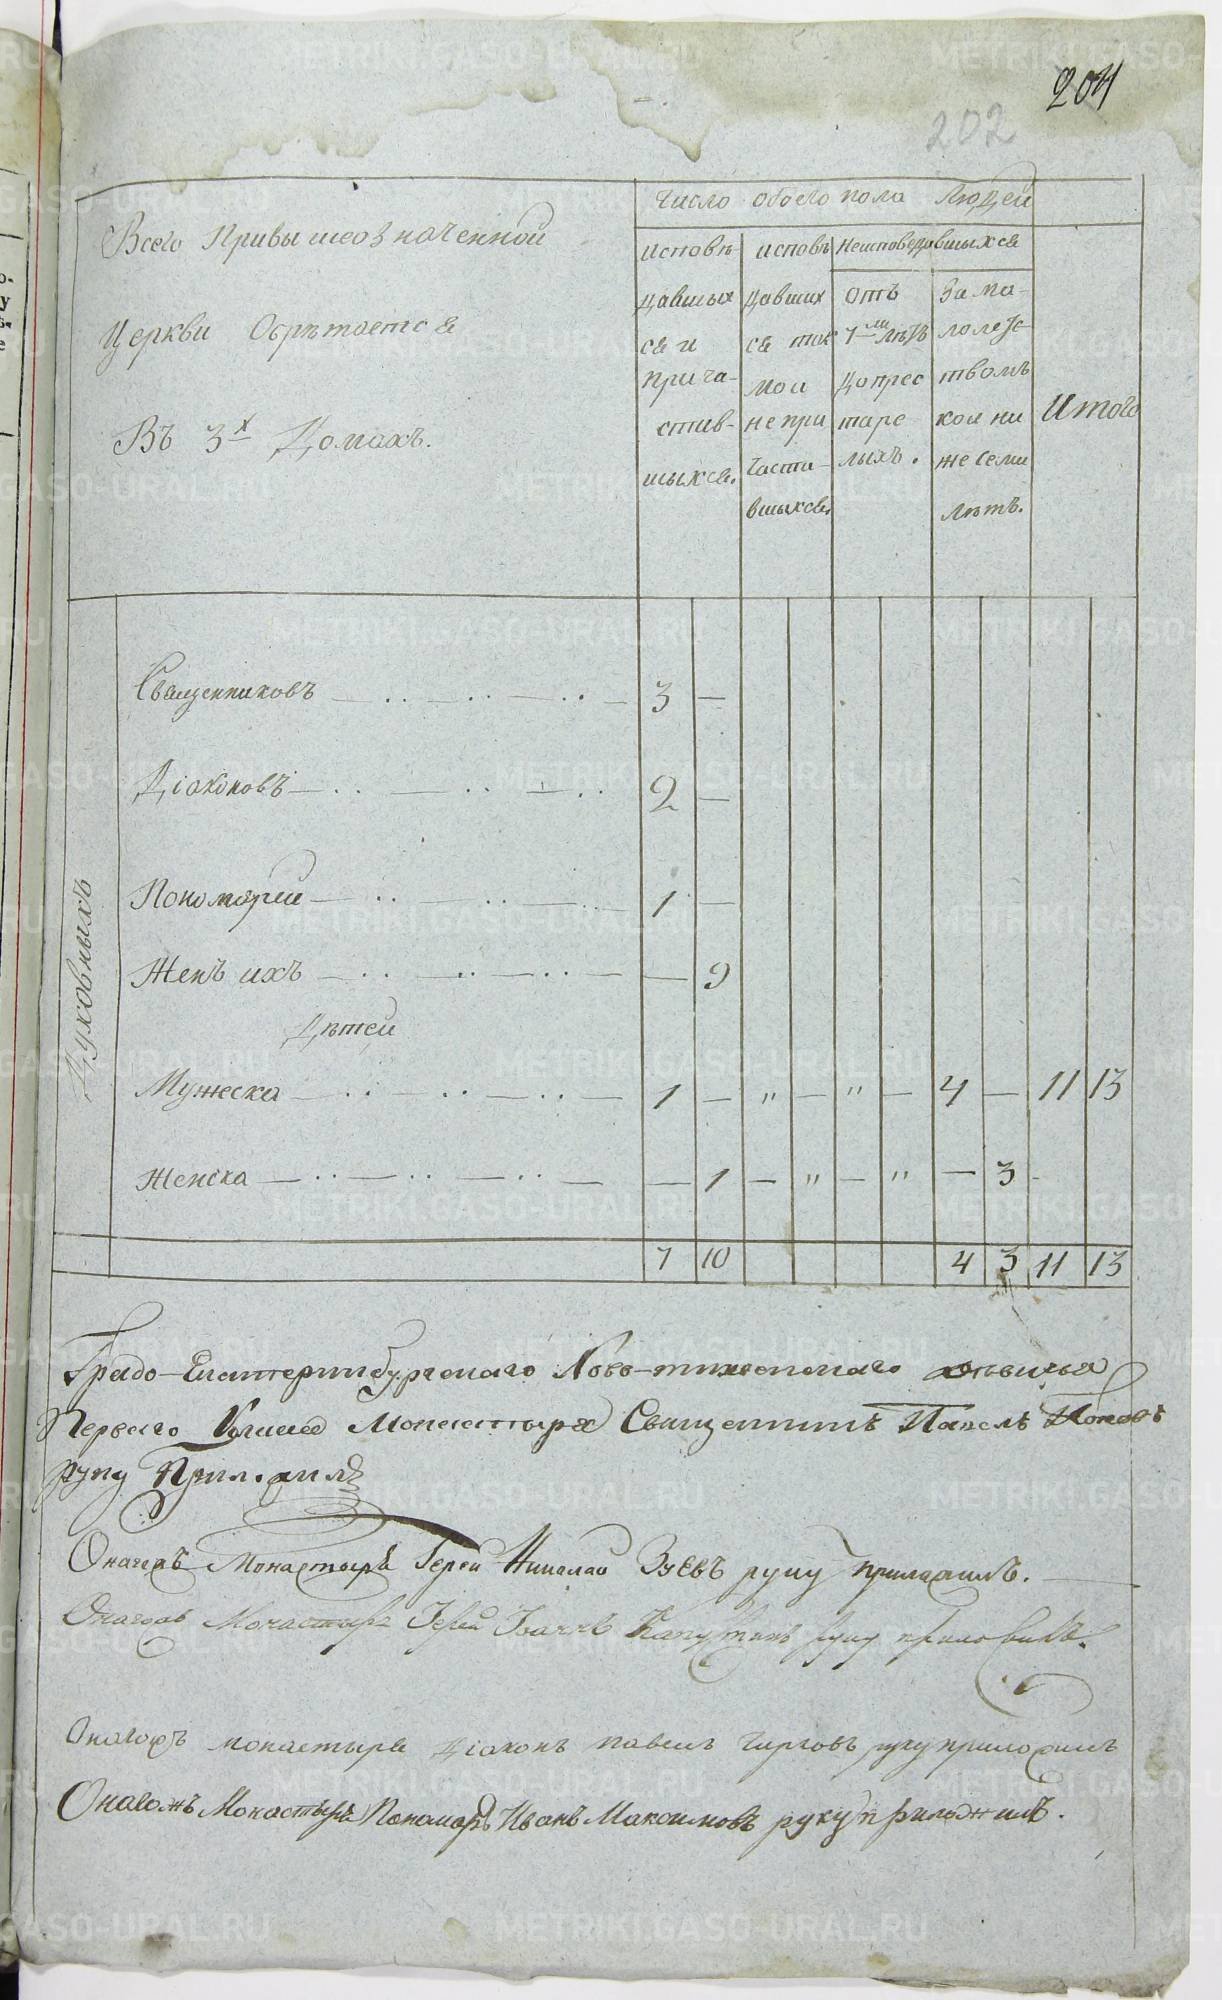 204
202
Всего Привышеозначенной
Церкви Обрѣтается
Въ 3х Домахъ.
Число обоего пола Людей
исповѣ-
давшых
ся и
прича-
стив-
шыхся.
исповѣ
давших
ся ток
мо и
не при
части-
вшыхся.
Неисповедавшыхся
отъ
7ми лѣтъ
до прес
таре
лыхъ.
За ма-
лолетс-
твомъ
кои ни
же семи
лѣтъ.
Итого
Духовныхъ
Священниковъ — .. — .. — .. — 3 —
Діаконовъ — .. — .. — .. 2 —
Пономарей — .. — .. — .. — 1 —
Женъ ихъ — .. — .. — .. — — 9
Дѣтей
Мужеска — .. — .. — .. — 1 — " — " — 4 — 11 13
Женска — .. — .. — .. — — 1 — " — " — 3 -
7 10 4 3 11 13
Градо-Екатеринбургскаго Ново-тихвинскаго дѣвичья
Перваго Класса Монастыря Священникъ Павелъ Поповъ
руку Приложилъ
Онагожъ Монастыря Іерей Николай Зуевъ руку приложилъ.
Онагожъ Монастыря Іерей Іоаннъ Капустинъ руку приложилъ.
Онагожъ монастыря Діаконъ павелъ Чирковъ руку приложилъ
Онагожъ Монастыря Пономарь Иванъ Максимовъ руку приложилъ.